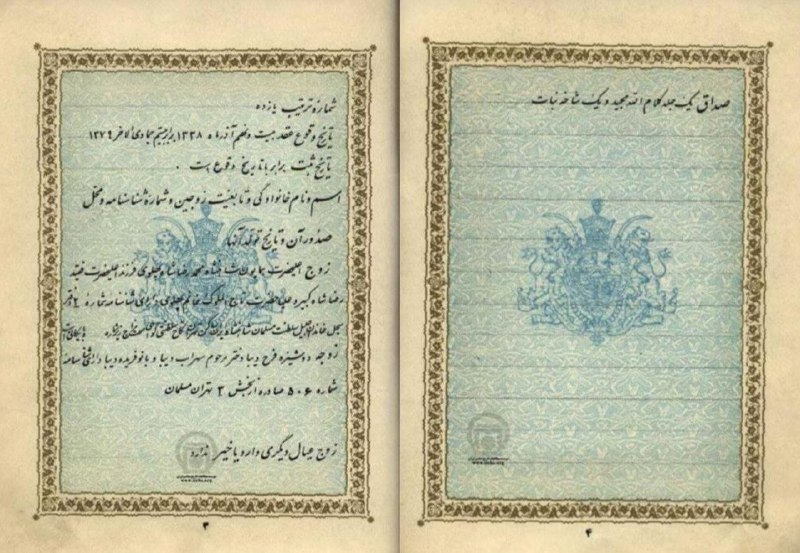 شمارهٔ ترتیب یازده
تاریخ وقوع عقد بیست و نهم آذرماه ۱۳۳۸ برابر بیستم جمادی الاخر ۱۳۷۹
تاریخ ثبت برابر با تاریخ وقوع است .
اسم و نام خانوادگی و تابعیت زوجین و شمارهٔ شناسنامه و محل
صدور آن و تاریخ تولد آنها
زوج اعلیحضرت همایون شاهنشاه محمدرضا شاه پهلوی فرزند اعلیحضرت فقید
رضا شاه کبیر و علیاحضرت تاج الملوک خانم پهلوی دارای شناسنامه شماره ۲ دفتر
سجل خاندان جلیل سلطنت مسلمان شاهنشاه ایران ساکن تهران کاخ سلطنتی
زوجه دوشیزه فرح دیبا دختر مرحوم سهراب دیبا و بانو فریده دیبا دارای شناسنامه
شماره ۵۰۶ صادره از بخش ۲ تهران مسلمان
زوج عیال دیگری دارد یا خیر ندارد
www.iichs.org
۳
صداق یک جلد کلام الله مجید و یک شاخه نبات
www.iichs.org
۴